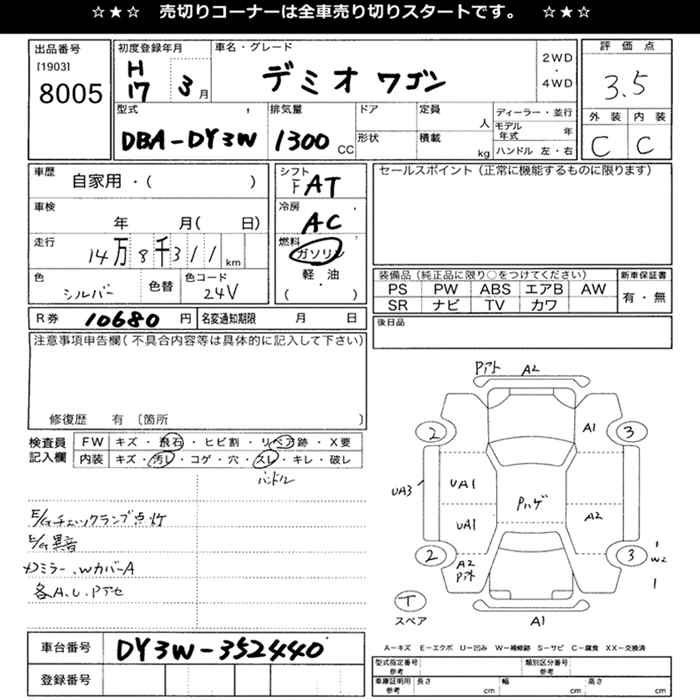 ☆★☆ 売切りコーナーは全車売り切りスタートです。 ☆★☆
出品番号
[1903]
8005
初度登録年月
H17 3月
車名・グレード
デミオ ワゴン
2WD
・
4WD
評価点
3.5
外装 内装
C C
型式
DBA-DY3W
排気量
1300 CC
ドア
形状
定員 人
積載 kg
ディーラー・並行
モデル年式 年
ハンドル 左・右
車歴
自家用・( )
車検
年 月( 日)
走行
14万8千311km
色
シルバー
色替
色コード
24V
シフト
F AT
冷房
AC
燃料
ガソリン
軽・油
( )
セールスポイント(正常に機能するものに限ります)
装備品(純正品に限り○をつけてください)
PS PW ABS エアB AW
SR ナビ TV カワ
新車保証書
有・無
R券 10680円
名変通知期限 月 日
後日品
注意事項申告欄(不具合内容等は具体的に記入して下さい)
修復歴 有 〔箇所
検査員
記入欄
FW キズ・飛石・ヒビ割・リペア跡・X要
内装 キズ・汚レ・コゲ・穴・スレ・キレ・破レ
ハンドル
E/Gチェックランプ点灯
E/G異音
メミラー、WカバーA
各A.U.Pデセ
Pアト A2
2 A1 3
UA3 UA1 Pハゲ
UA1 A2
2 A2 Pアト 3 W2
T
スペア
A1
A-キズ E-エクボ U-凹み W-補修跡 S-サビ C-腐食 XX-交換済
車台番号
DY3W-352440
登録番号
型式指定番号 参考
類別区分番号 参考
車庫証明用 参考
長さ cm 幅 cm 高さ cm